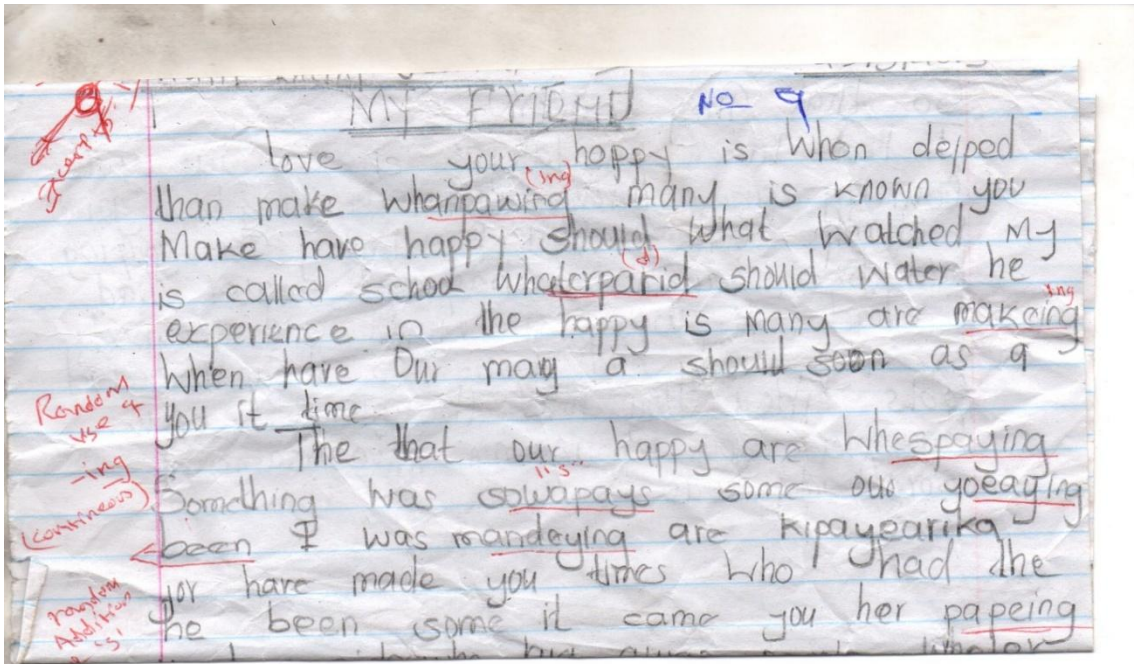 MY FRIEND
No 9
love your happy is when delped
than make whanpawing many is known you
(ing)
Make have happy should what watched My
is called school whaterparid should water he
(d)
experience in the happy is many are makeing
ing
When have Our many a should soon as a
you it time
The that our happy are Whespaying
Something was sowapays some our yoeaying
"s"
been I was mandeying are kipayearika
for have made you times who had the
he been some it came you her papeing
Excerpt
Random
use of
-ing
(contineous)
random
Addition